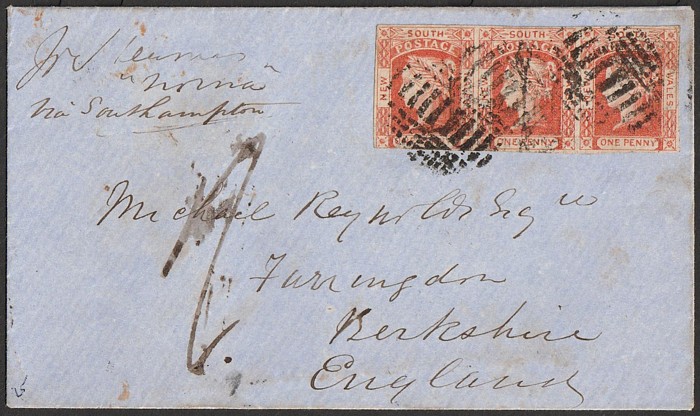 pr Steamer
"Norna"
via Southampton
SOUTH
POSTAG
NEW
SOUTH
POSTAG
NEW
WALES
ONE PENNY
ONE PENNY
Michael Reynolds Esqre
Farringdon
Berkshire
England